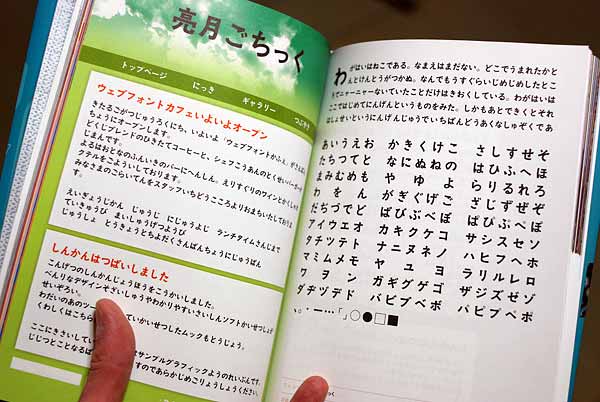 亮月ごちっく
トップページ
にっき
ギャラリー
つぶやき
ウェブフォントカフェいよいよオープン
きたるごがつじゅうろくにち、いよいよ「ウェブフォントかふぇ」がきちじ
ちょうにオープンします。
どくじブレンドのひきたてコーヒーと、シェフこうあんのとくせいバーガーが
じまんです。
よるはおとなのふんいきのバーにへんしん。えりすぐりのワインとかくしゅカ
クテルをごよういしております。
みなさまのごらいてんをスタッフいちどうこころよりおまちいたしております。
えいぎょうじかん じゅうじ にじゅうよじ ランチタイムさんじまで
ていきゅうび まいしゅうげつようび
じゅうしょ とうきょうとちよだくさんばんちょうにじゅうばん
しんかんはつばいしました
こんげつのしんかんじょうほうをごうかいしました。
べんりなデザインそざいしゅうやわかりやすいさいしんソフトかいせつしょが
せいぞろい。
わだいのあのツー
ていかいせつしたムックもとうじょう。
くわしくはこちら
ここにきさいしてい
はサンプルグラフィックようのれいぶんです。
じじつとことなるば
すのであらかじめごりょうしょうください。
わがはいはねこである。なまえはまだない。どこでうまれたかと
んとけんとうがつかぬ。なんでもうすぐらいじめじめしたとこ
ろでニャーニャーないていたことだけはきおくしている。わがはいは
ここではじめてにんげんというものをみた。しかもあとできくとそれ
はしょせいというにんげんじゅうでいちばんどうあくなしゅぞくであ
あいうえお かきくけこ さしすせそ
たちつてと なにぬねの はひふへほ
まみむめも や ゆ よ らりるれろ
わ を ん がぎぐげご ざじずぜぞ
だぢづでど ばびぶべぼ ぱぴぷぺぽ
アイウエオ カキクケコ サシスセソ
タチツテト ナニヌネノ ハヒフヘホ
マミムメモ ヤ ユ ヨ ラリルレロ
ワ ヲ ン ガギグゲゴ ザジズゼゾ
ダヂヅデド バビブベボ パピプペポ
、。・ー…「」○●□■